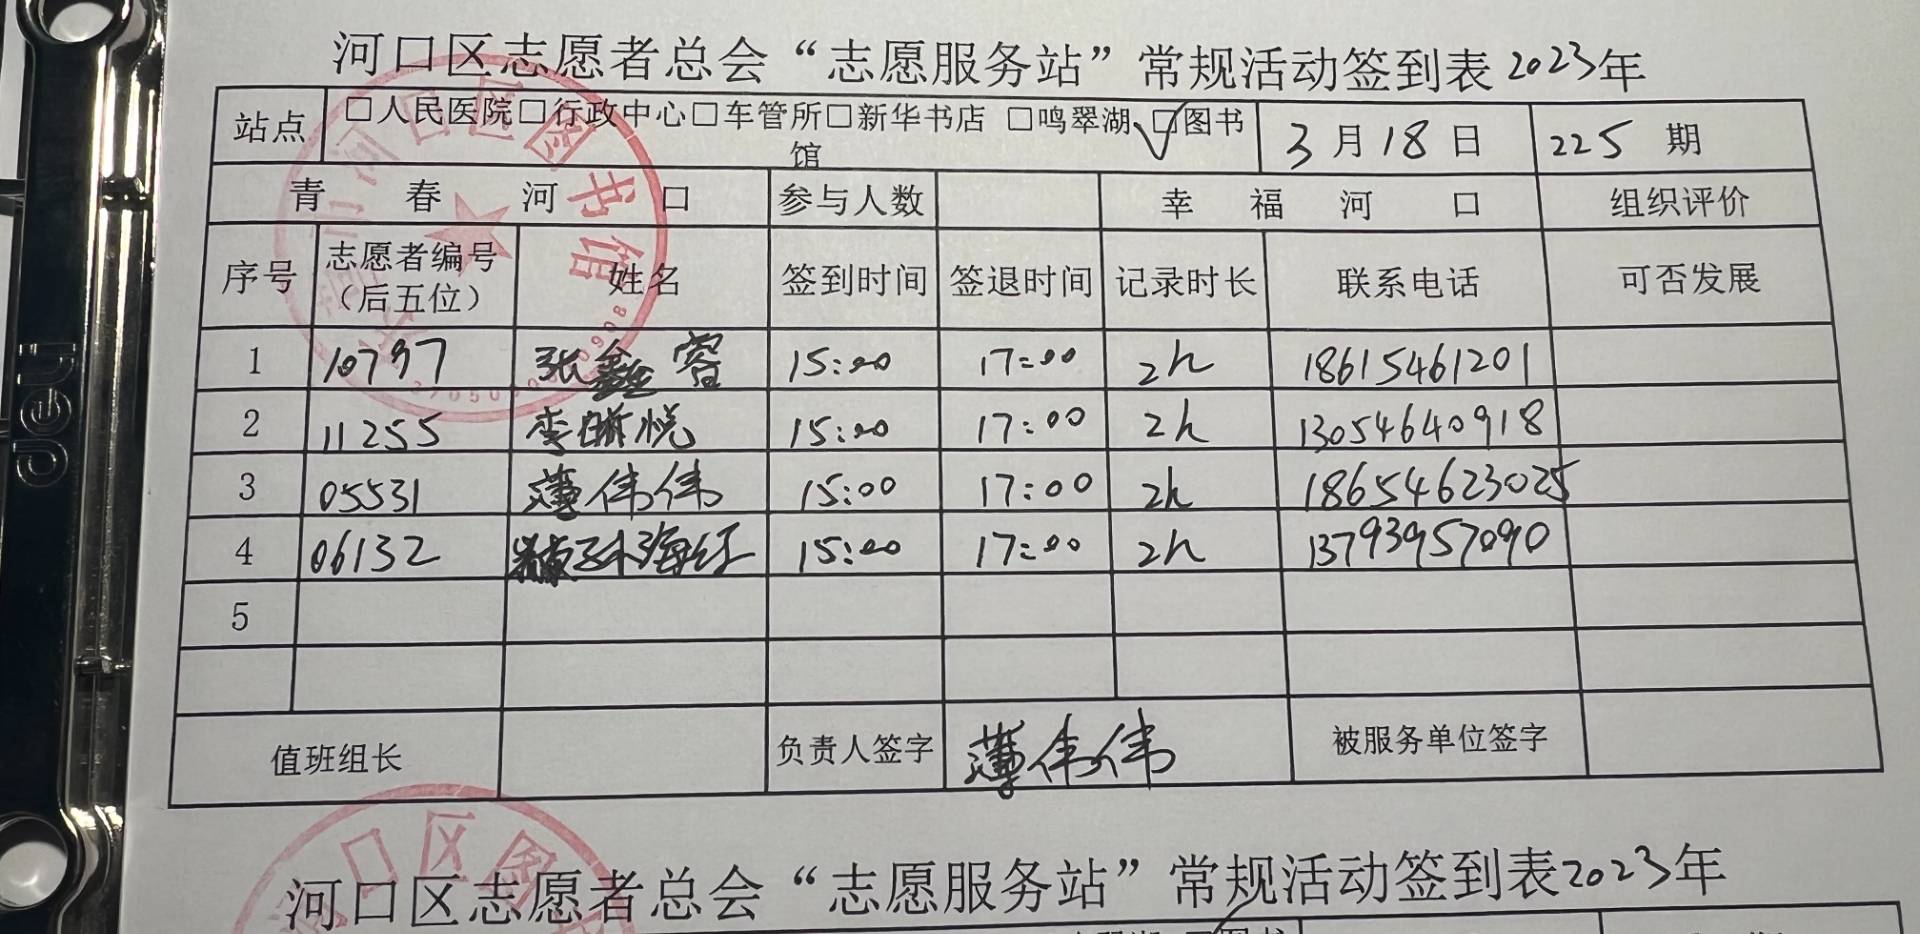 河口区志愿者总会“志愿服务站”常规活动签到表2023年
站点 □人民医院□行政中心□车管所□新华书店 □鸣翠湖 ☑图书馆 3月18日 225期
青春河口 参与人数 幸福河口 组织评价
序号 志愿者编号（后五位） 姓名 签到时间 签退时间 记录时长 联系电话 可否发展
1 10797 张鑫蓉 15:00 17:00 2h 18615461201
2 11255 李晰悦 15:00 17:00 2h 13054640918
3 05531 薄伟伟 15:00 17:00 2h 18654623025
4 06132 孙海红 15:00 17:00 2h 13793957090
5
值班组长 负责人签字 薄伟伟 被服务单位签字
河口区志愿者总会“志愿服务站”常规活动签到表2023年